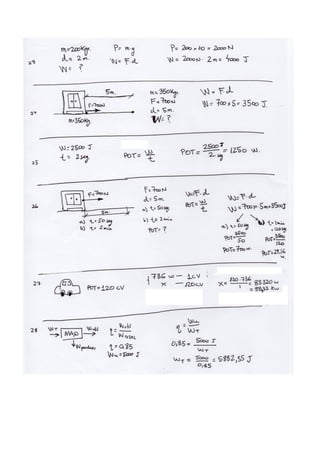 23
m=200kg.
d= 2m.
W= ?
P= m·g
W= F.d
P= 200 × 10 = 2000N
W= 2000N · 2m = 4000 J
24
5m
F=700N
m=350kg
m=350kg
F=700N
d=5m.
W=?
W=F.d
W=700×5=3500J.
25
W=2500 J
t= 2seg
POT= W/t
POT= 2500J/2seg = 1250 w.
26
F=700N
5m
a) t=50seg
b) t=2min
F=700N
d=5m.
a) t=50seg
b) t=2min
POT=?
W=F.d
POT= W/t
W=F.d
W=700N·5m=3500J
a) t=50seg
POT= 3500/50
POT=70w.
b) t=2min
=120seg
POT= 3500/120
POT=29,16
w.
27
POT=120CV
736 w — 1CV
x — 120CV
x= 120·736/1 = 88320w
= 88'32 kw
28
MAQ
W perdut
η= 0,85
Wu=5000 J
η= Wu/WT
0,85= 5000 J/WT
WT= 5000/0,85 = 5882,35 J